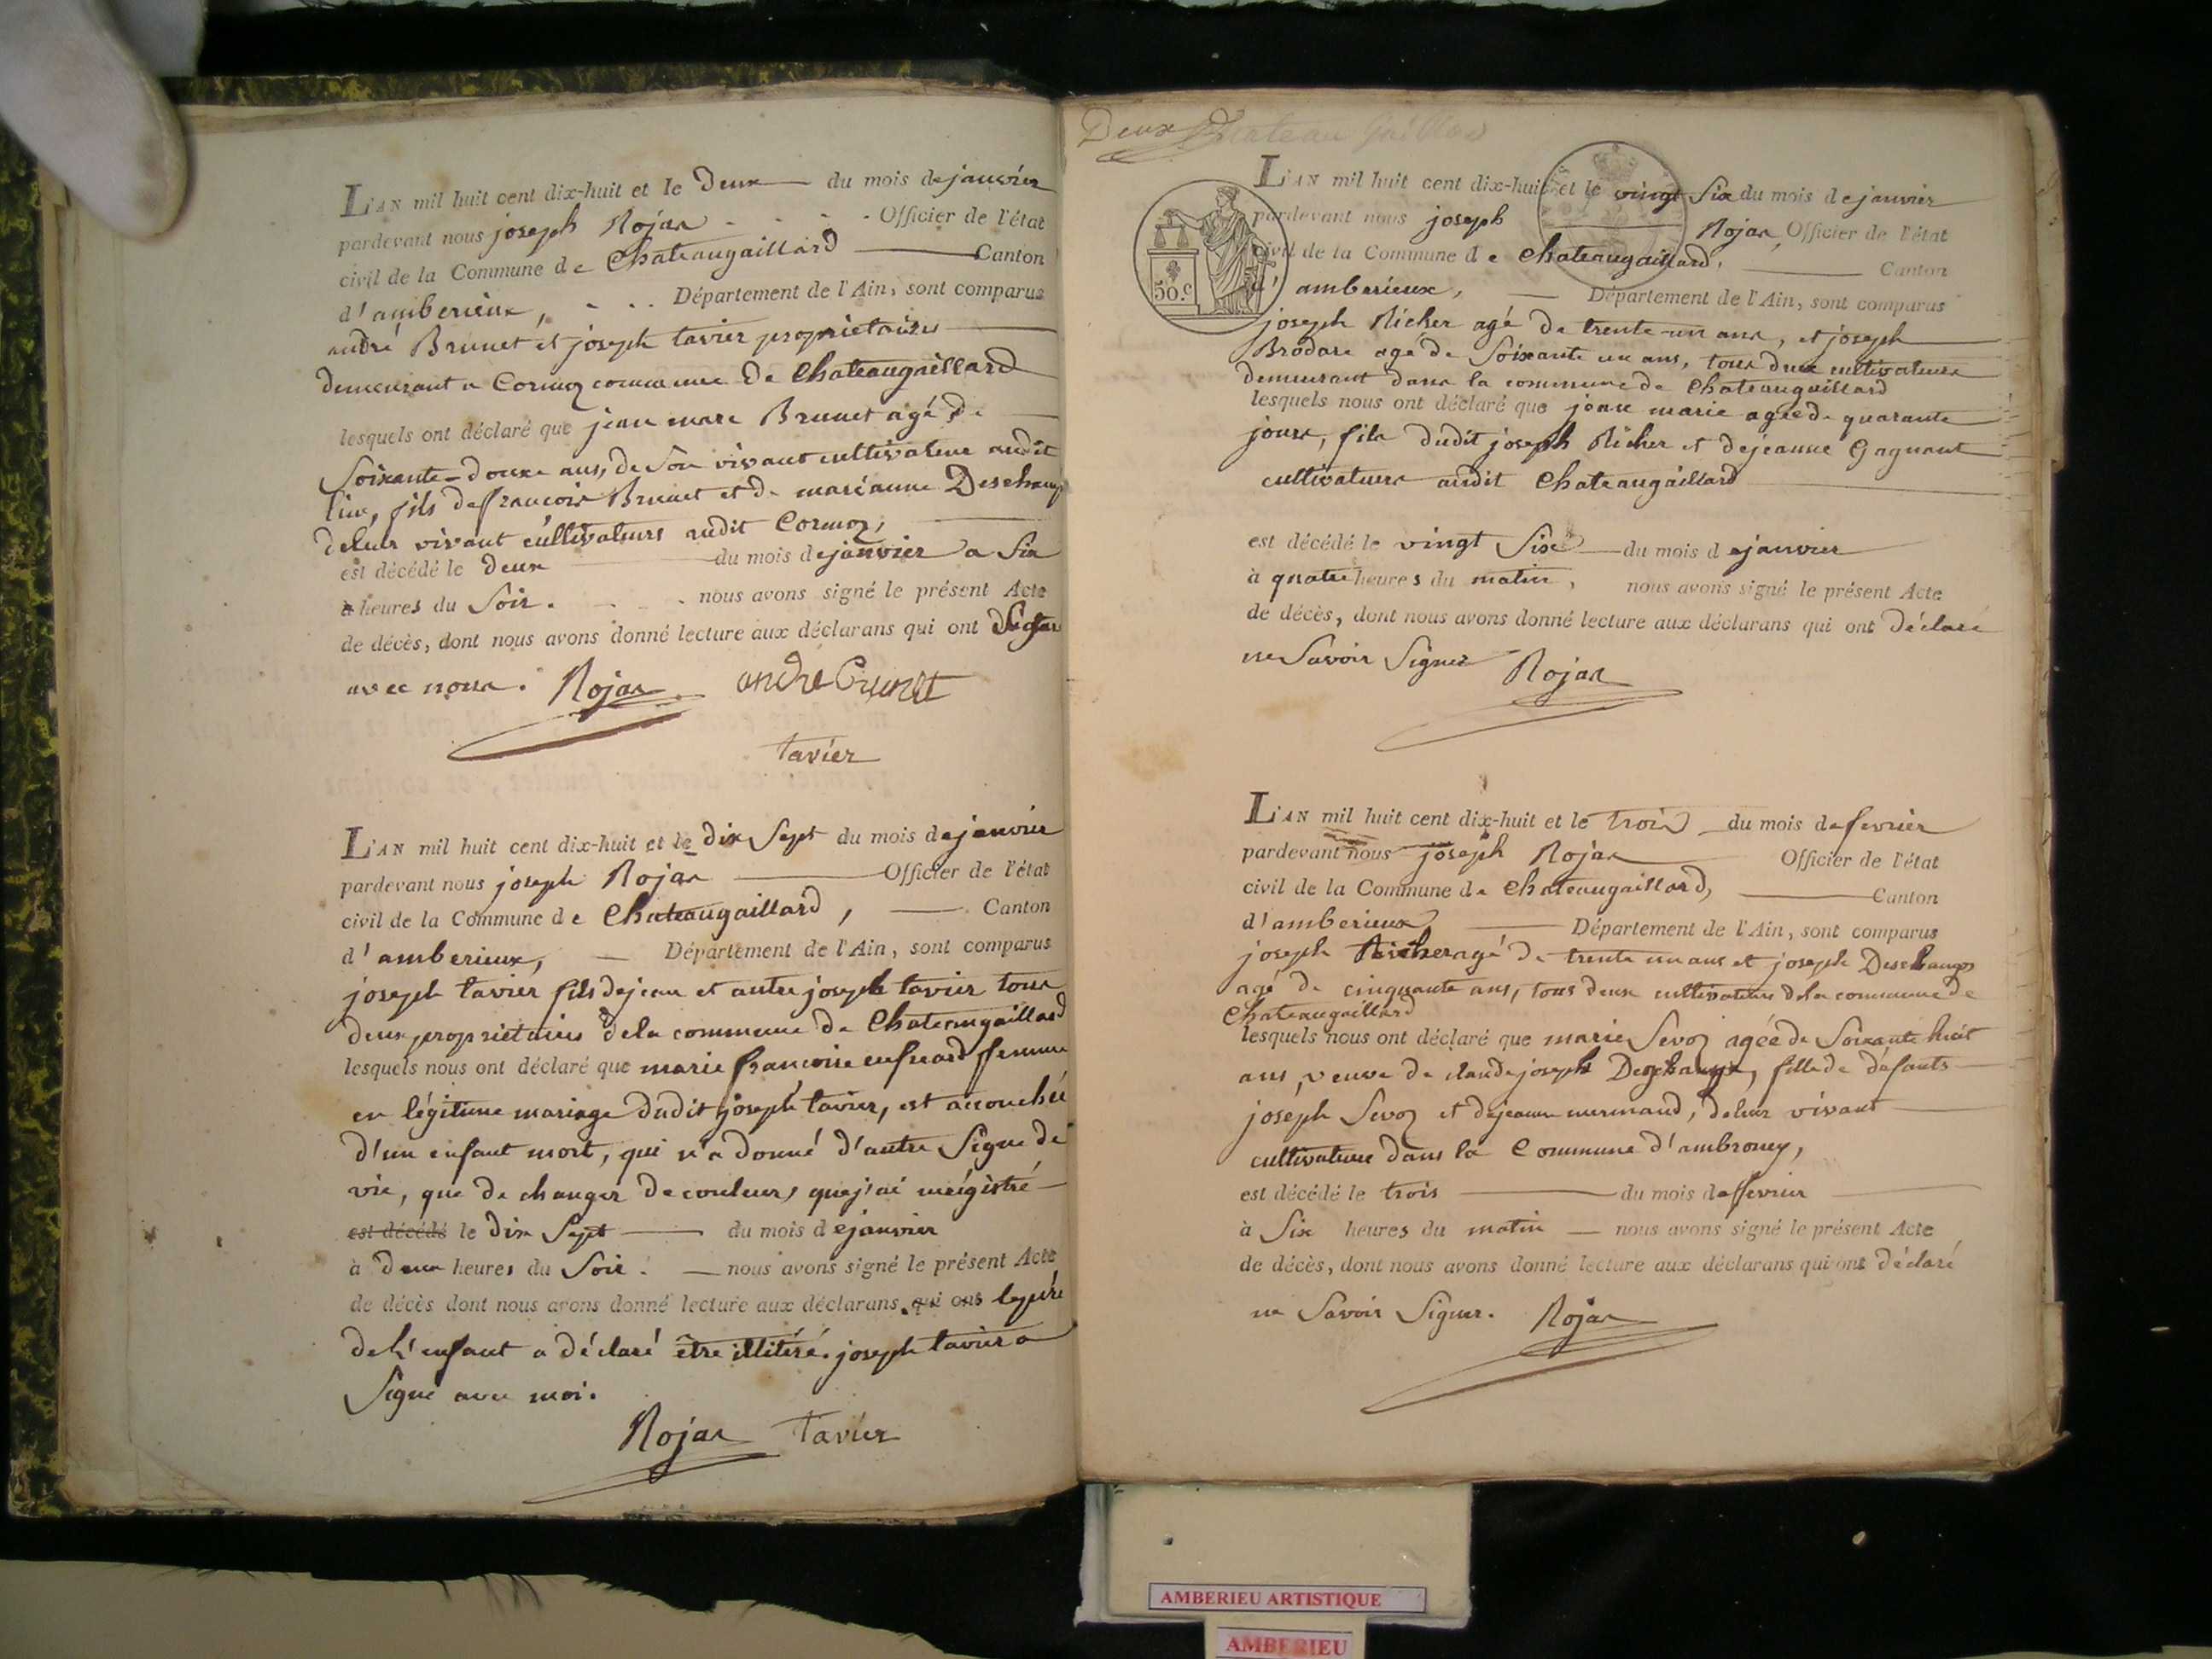 L'AN mil huit cent dix-huit et le deux du mois de janvier
pardevant nous joseph Rojas Officier de l'état
civil de la Commune de Chateaugaillard Canton
d'amberieux, Département de l'Ain, sont comparus
andré Brunet et joseph tavier proprietaires
demeurant a Cormoz commune de Chateaugaillard
lesquels ont déclaré que jean marc Brunet agé de
Soixante-douze ans, de Son vivant cultivateur audit
lieu, fils de francois Brunet et de marianne Deschamp
deleur vivant cultivateurs audit Cormoz,
est décédé le deux du mois de janvier a Six
heures du Soir. nous avons signé le présent Acte
de décès, dont nous avons donné lecture aux déclarans qui ont
avec nous. Rojas andre Brunet
tavier
L'AN mil huit cent dix-huit et le dix Sept du mois de janvier
pardevant nous joseph Rojas Officier de l'état
civil de la Commune de Chateaugaillard, Canton
d'amberieux, Département de l'Ain, sont comparus
joseph tavier fils de jean et autre joseph tavier tous
deux proprietaires dela commune de Chateaugaillard
lesquels nous ont déclaré que marie francoise femme
en légitime mariage dudit joseph tavier, est accouchée
d'un enfant mort, qui n'a donné d'autre Signe de
vie, que de changer de couleur, que j'ai
est décédé le dix Sept du mois de janvier
à deux heures du Soir. nous avons signé le présent Acte
de décès dont nous avons donné lecture aux déclarans qui ont le père
de l'enfant a déclaré être illitéré. joseph tavier a
Signé avec moi.
Rojas tavier
Deux Chateau Gaillard
L'AN mil huit cent dix-huit et le vingt Six du mois de janvier
pardevant nous joseph Rojas Officier de l'état
civil de la Commune de Chateaugaillard, Canton
d'amberieux, Département de l'Ain, sont comparus
50.c
joseph Richer agé de trente-un ans, et joseph
Brodare age de Soixante un ans, tous deux cultivateurs
demeurant dans la commune de Chateaugaillard
lesquels nous ont déclaré que jean marie agé de quarante
jours, fils dudit joseph Richer et de jeanne Gagnant
cultivateurs audit Chateaugaillard
est décédé le vingt Six du mois de janvier
à quatre heures du matin, nous avons signé le présent Acte
de décès, dont nous avons donné lecture aux déclarans qui ont déclaré
ne Savoir Signer Rojas
L'AN mil huit cent dix-huit et le trois du mois de fevrier
pardevant nous joseph Rojas Officier de l'état
civil de la Commune de Chateaugaillard, Canton
d'amberieux Département de l'Ain, sont comparus
joseph Richer agé de trente un ans et joseph Deschamps
agé de cinquante ans, tous deux cultivateurs dela commune de
Chateaugaillard
lesquels nous ont déclaré que marie Sevoz agée de Soixante huit
ans, veuve de claude joseph Deschamps, fille de défunts
joseph Sevoz et de jeanne mermand, deleur vivant
cultivateurs dans la Commune d'ambronay,
est décédé le trois du mois de fevrier
à Six heures du matin nous avons signé le présent Acte
de décès, dont nous avons donné lecture aux déclarans qui ont déclaré
ne Savoir Signer. Rojas
AMBERIEU ARTISTIQUE
AMBERIEU